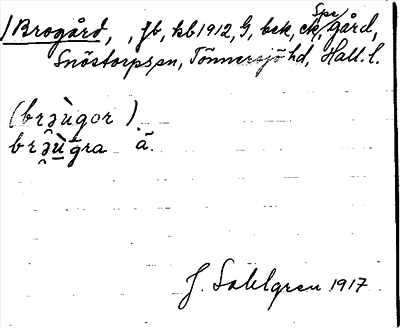 /Brogård, , Jb, kb 1912, G, bek, ek, Spr/ gård,
Snöstorps sn, Tönnersjö hd, Hall. l.
(brəùgor ).
brə̯ùgra ā.
J. Sahlgren 1917